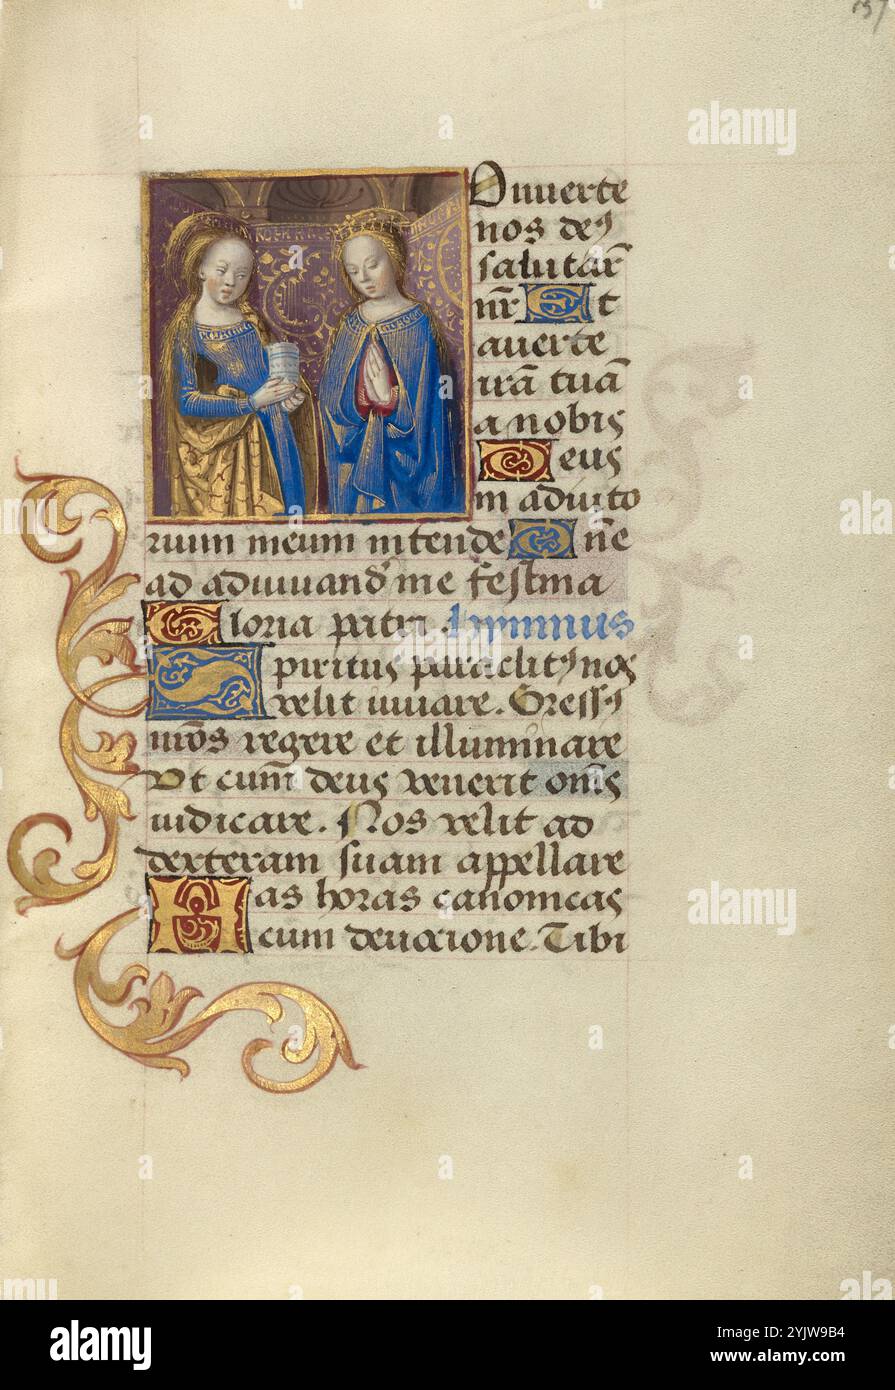 157
Onuerte
nos de9
salutar̄
nr̄ Et
auerte
irā tuā
a nobis
Deus
in adiuto
rium meum intende Dn̄e
ad adiuuand̄ me festina
Gloria patri. hymnus
Spiritus paraclit9 nos
velit iuuare. Gress9
nr̄os regere et illuminare
Ut cum̄ deus venerit om̄s
iudicare. Nos velit ad
dexteram suam appellare
Has horas canonicas
cum deuocione. Tibi
alamy
Image ID: 2YJW9B4
www.alamy.com